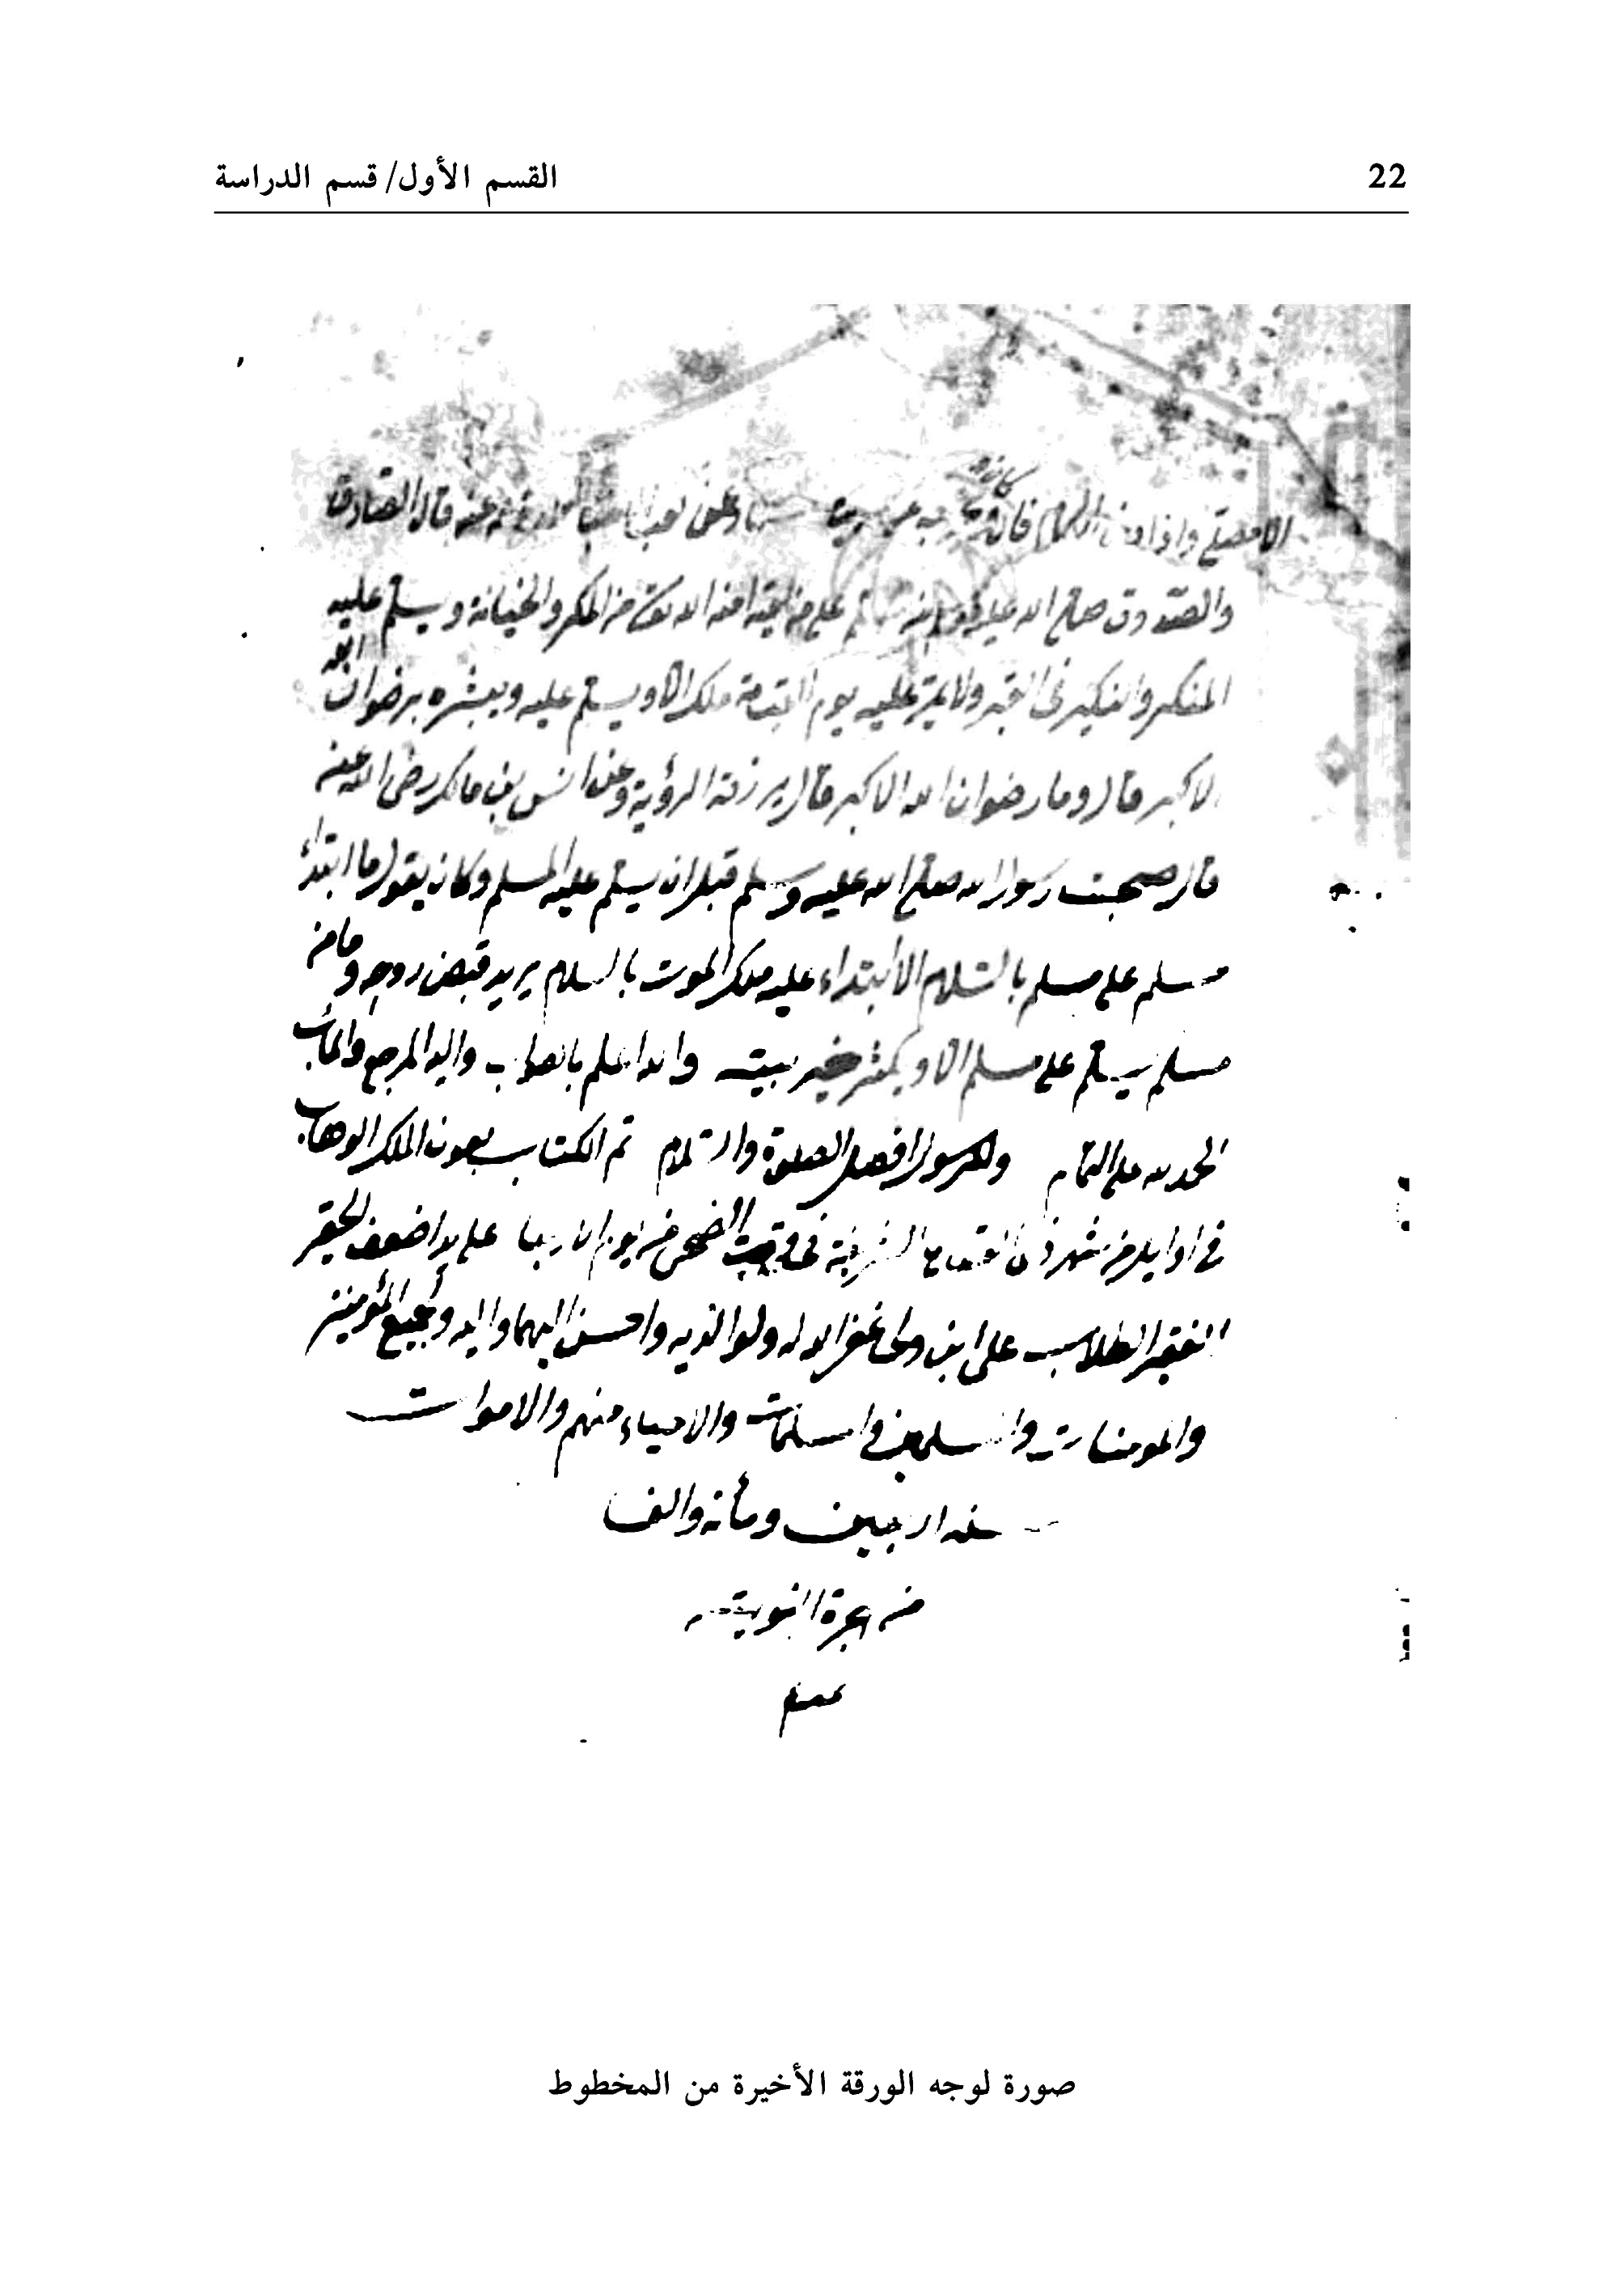 22
القسم الأول/ قسم الدراسة
قال الصادق
والصدوق صلى الله عليه من المكر والخيانة ويسلم عليه
المنكر والنكير في القبر ولا يمر عليه يوم القيمة ملك الا ويسلم عليه ويبشره برضوان الله
الاكبر قال وما رضوان الله الاكبر قال يرزقه الرؤية وعن انس بن مالك رضى الله عنه
قال صحبت رسول الله صلى الله عليه وسلم قبل ان يسلم عليه المسلم وكان يقول ما ابتداء
مسلم على مسلم بالسلام الا ابتداء عليه ملك الموت بالسلام يريد قبض روحه وما من
مسلم يسلم على مسلم الا ويكثر خير بيته والله اعلم بالصواب واليه المرجع والمآب
الحمد لله على التمام ولرسوله افضل الصلوة والسلام تم الكتاب بعون الملك الوهاب
في اوايل من شهر ذى القعدة الشريفة في وقت الضحى من يوم على يد اضعف الحقير
الفقير الطالب على ابن غفر الله له ولوالديه واحسن اليهما واليه وجميع المؤمنين
والمومنات والمسلمين والمسلمات والاحياء منهم والاموات
سنه اربعين ومأته والف
من هجرة النبوية
تمم
صورة لوجه الورقة الأخيرة من المخطوط